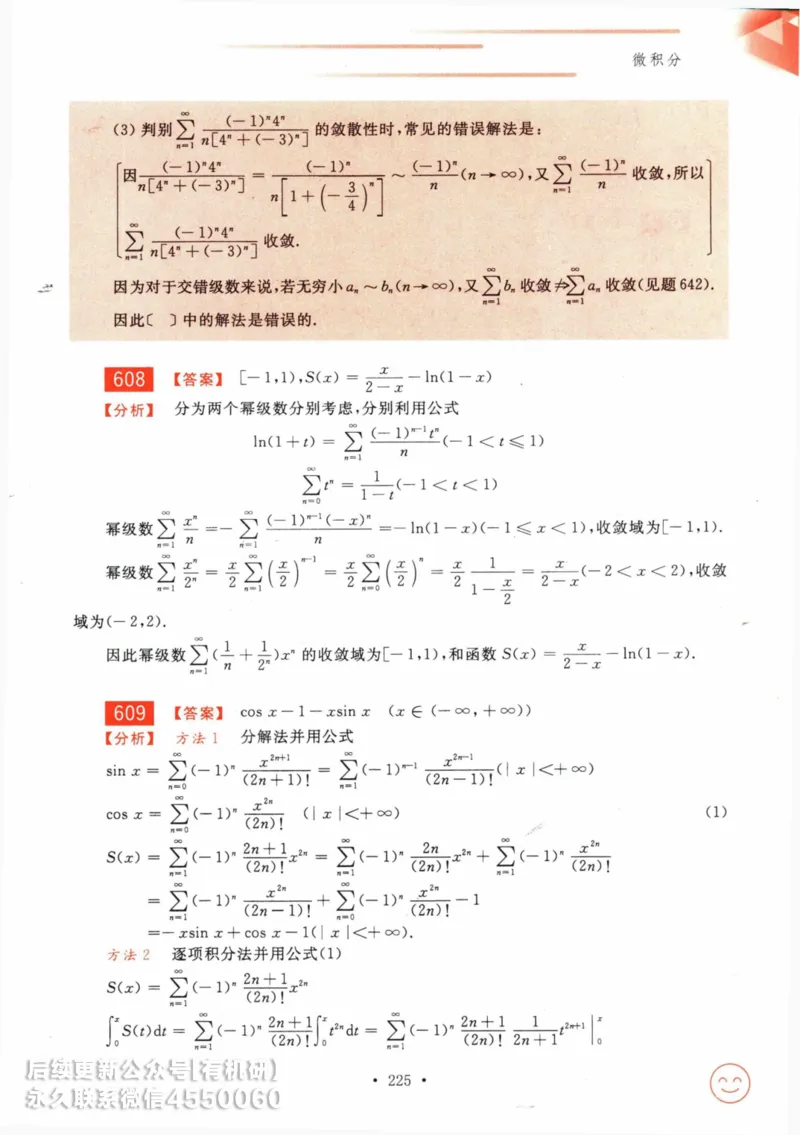 微积分
(3) 判别$\sum_{n=1}^{\infty}\frac{(-1)^n4^n}{n[4^n+(-3)^n]}$的敛散性时,常见的错误解法是:
〔因$\frac{(-1)^n4^n}{n[4^n+(-3)^n]}=\frac{(-1)^n}{n\left[1+\left(-\frac{3}{4}\right)^n\right]}\sim\frac{(-1)^n}{n}(n\to\infty)$,又$\sum_{n=1}^{\infty}\frac{(-1)^n}{n}$收敛,所以
$\sum_{n=1}^{\infty}\frac{(-1)^n4^n}{n[4^n+(-3)^n]}$收敛.〕
因为对于交错级数来说,若无穷小$a_n\sim b_n(n\to\infty)$,又$\sum_{n=1}^{\infty}b_n$收敛$\not\Rightarrow\sum_{n=1}^{\infty}a_n$收敛(见题642).
因此〔 〕中的解法是错误的.
608 【答案】 $[-1,1),S(x)=\frac{x}{2-x}-\ln(1-x)$
【分析】 分为两个幂级数分别考虑,分别利用公式
$\ln(1+t)=\sum_{n=1}^{\infty}\frac{(-1)^{n-1}t^n}{n}(-1<t\leqslant1)$
$\sum_{n=0}^{\infty}t^n=\frac{1}{1-t}(-1<t<1)$
幂级数$\sum_{n=1}^{\infty}\frac{x^n}{n}=-\sum_{n=1}^{\infty}\frac{(-1)^{n-1}(-x)^n}{n}=-\ln(1-x)(-1\leqslant x<1)$,收敛域为$[-1,1)$.
幂级数$\sum_{n=1}^{\infty}\frac{x^n}{2^n}=\frac{x}{2}\sum_{n=1}^{\infty}\left(\frac{x}{2}\right)^{n-1}=\frac{x}{2}\sum_{n=0}^{\infty}\left(\frac{x}{2}\right)^n=\frac{x}{2}\frac{1}{1-\frac{x}{2}}=\frac{x}{2-x}(-2<x<2)$,收敛
域为$(-2,2)$.
因此幂级数$\sum_{n=1}^{\infty}(\frac{1}{n}+\frac{1}{2^n})x^n$的收敛域为$[-1,1)$,和函数$S(x)=\frac{x}{2-x}-\ln(1-x)$.
609 【答案】 $\cos x-1-x\sin x\quad(x\in(-\infty,+\infty))$
【分析】 方法1 分解法并用公式
$\sin x=\sum_{n=0}^{\infty}(-1)^n\frac{x^{2n+1}}{(2n+1)!}=\sum_{n=1}^{\infty}(-1)^{n-1}\frac{x^{2n-1}}{(2n-1)!}(|x|<+\infty)$
$\cos x=\sum_{n=0}^{\infty}(-1)^n\frac{x^{2n}}{(2n)!}\quad(|x|<+\infty)$ (1)
$S(x)=\sum_{n=1}^{\infty}(-1)^n\frac{2n+1}{(2n)!}x^{2n}=\sum_{n=1}^{\infty}(-1)^n\frac{2n}{(2n)!}x^{2n}+\sum_{n=1}^{\infty}(-1)^n\frac{x^{2n}}{(2n)!}$
$=\sum_{n=1}^{\infty}(-1)^n\frac{x^{2n}}{(2n-1)!}+\sum_{n=0}^{\infty}(-1)^n\frac{x^{2n}}{(2n)!}-1$
$=-x\sin x+\cos x-1(|x|<+\infty)$.
方法2 逐项积分法并用公式(1)
$S(x)=\sum_{n=1}^{\infty}(-1)^n\frac{2n+1}{(2n)!}x^{2n}$
$\int_0^x S(t)dt=\sum_{n=1}^{\infty}(-1)^n\frac{2n+1}{(2n)!}\int_0^x t^{2n}dt=\sum_{n=1}^{\infty}(-1)^n\frac{2n+1}{(2n)!}\frac{1}{2n+1}t^{2n+1}\Big|_0^x$
后续更新公众号[有机研]
永久联系微信4550060
• 225 •